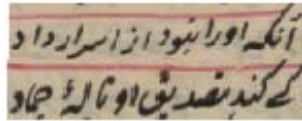 آنکه اورا نبود از اسرار داد
کے کند تصدیق او نالۂ جماد